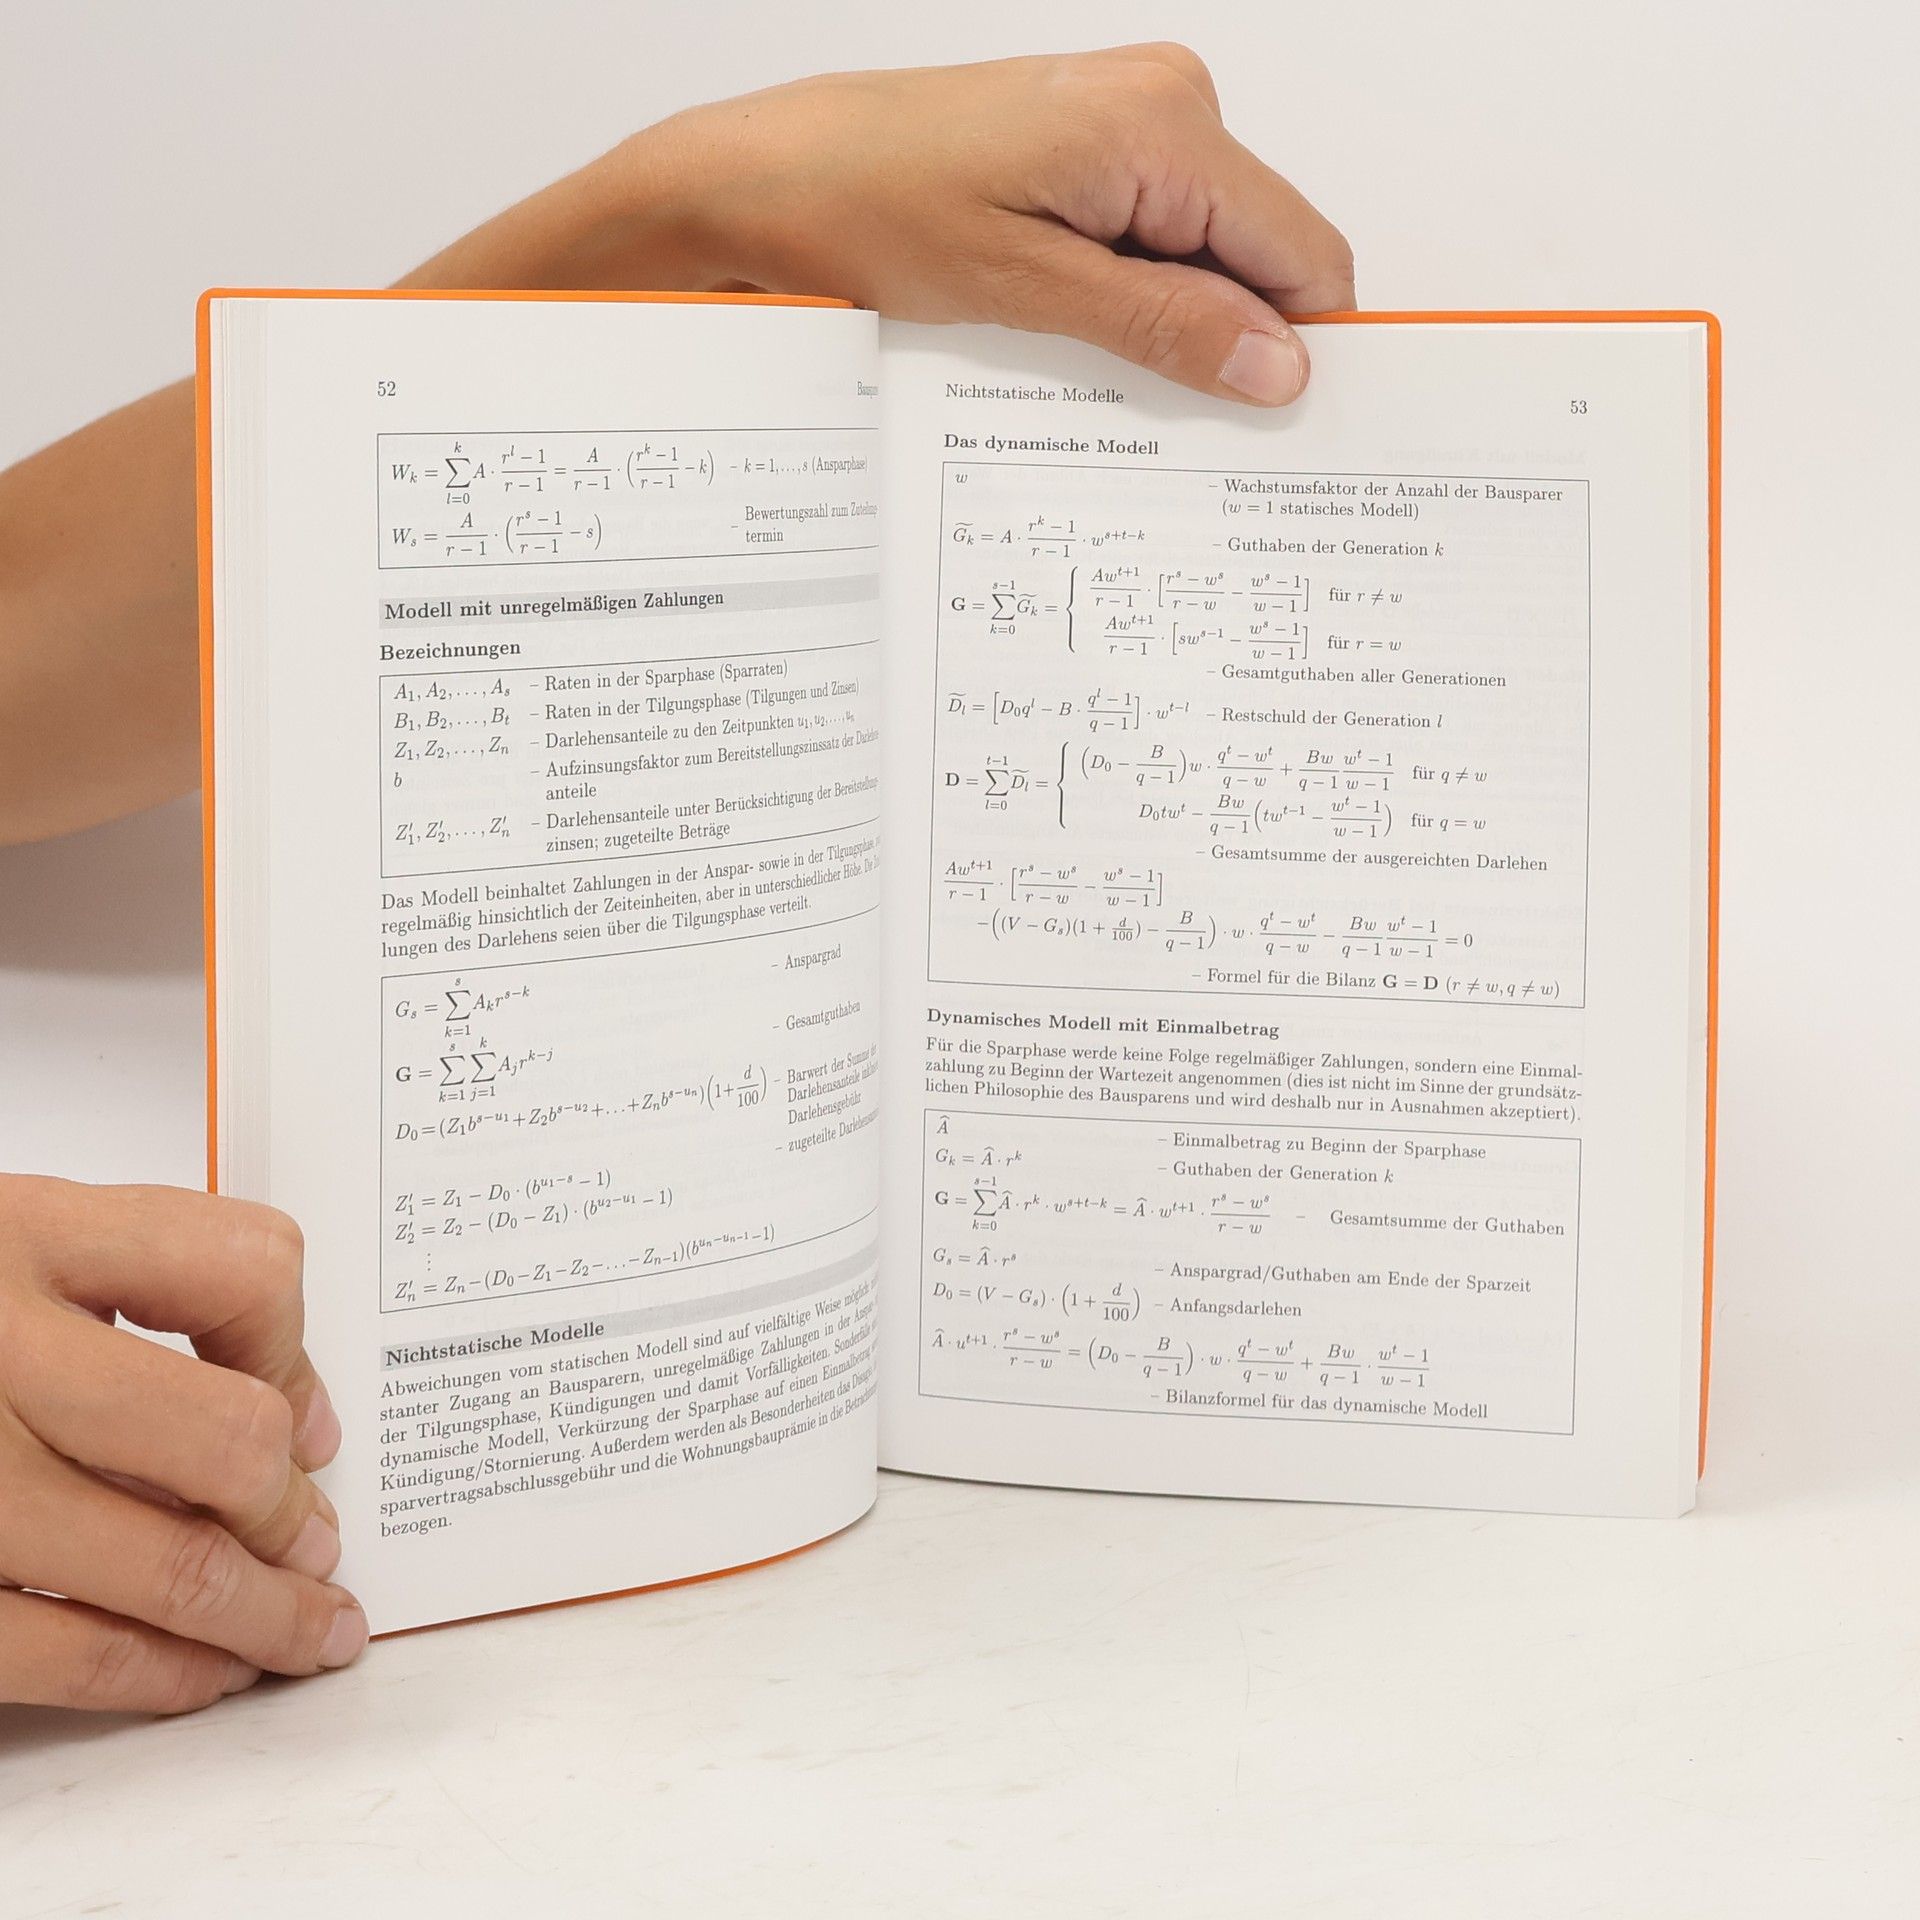 52
W_k = \sum_{l=0}^{k} A · \frac{r^l − 1}{r − 1} = \frac{A}{r − 1} · (\frac{r^k − 1}{r − 1} − k) – k = 1, …, s (Ansparphase)
W_s = \frac{A}{r − 1} · (\frac{r^s − 1}{r − 1} − s) – Bewertungszahl zum
termin
Modell mit unregelmäßigen Zahlungen
Bezeichnungen
A_1, A_2, …, A_s – Raten in der Sparphase (Sparraten)
B_1, B_2, …, B_t – Raten in der Tilgungsphase (Tilgungen und Zinsen)
Z_1, Z_2, …, Z_n – Darlehensanteile zu den Zeitpunkten u_1, u_2, …, u_n
b – Aufzinsungsfaktor zum Bereitstellungszinssatz der
anteile
Z'_1, Z'_2, …, Z'_n – Darlehensanteile unter Berücksichtigung der
zinsen; zugeteilte Beträge
Das Modell beinhaltet Zahlungen in der Anspar- sowie in der Tilgungsphase,
regelmäßig hinsichtlich der Zeiteinheiten, aber in unterschiedlicher Höhe. Die
lungen des Darlehens seien über die Tilgungsphase verteilt.
G_s = \sum_{k=1}^{s} A_k r^{s−k} – Anspargrad
G = \sum_{k=1}^{s} \sum_{j=1}^{k} A_j r^{k−j} – Gesamtguthaben
D_0 = (Z_1 b^{s−u_1} + Z_2 b^{s−u_2} + … + Z_n b^{s−u_n})(1 + \frac{d}{100}) – Barwert der Summe
Darlehensanteile
Darlehensgebühr
– zugeteilte
Z'_1 = Z_1 − D_0 · (b^{u_1−s} − 1)
Z'_2 = Z_2 − (D_0 − Z_1) · (b^{u_2−u_1} − 1)
⋮
Z'_n = Z_n − (D_0 − Z_1 − Z_2 − … − Z_{n−1})(b^{u_n−u_{n−1}} − 1)
Nichtstatische Modelle
Abweichungen vom statischen Modell sind auf vielfältige Weise möglich
stanter Zugang an Bausparern, unregelmäßige Zahlungen in der
der Tilgungsphase, Kündigungen und damit Vorfälligkeiten. Sonderfälle
dynamische Modell, Verkürzung der Sparphase auf einen Einmalbetrag
Kündigung/Stornierung. Außerdem werden als Besonderheiten das
sparvertragsabschlussgebühr und die Wohnungsbauprämie in die
bezogen.
Nichtstatische Modelle 53
Das dynamische Modell
w – Wachstumsfaktor der Anzahl der Bausparer
(w = 1 statisches Modell)
\widetilde{G}_k = A · \frac{r^k − 1}{r − 1} · w^{s+t−k} – Guthaben der Generation k
G = \sum_{k=0}^{s−1} \widetilde{G}_k = { \frac{Aw^{t+1}}{r − 1} · [\frac{r^s − w^s}{r − w} − \frac{w^s − 1}{w − 1}] für r ≠ w
\frac{Aw^{t+1}}{r − 1} · [sw^{s−1} − \frac{w^s − 1}{w − 1}] für r = w
– Gesamtguthaben aller Generationen
\widetilde{D}_l = [D_0 q^l − B · \frac{q^l − 1}{q − 1}] · w^{t−l} – Restschuld der Generation l
D = \sum_{l=0}^{t−1} \widetilde{D}_l = { (D_0 − \frac{B}{q − 1}) w · \frac{q^t − w^t}{q − w} + \frac{Bw}{q − 1} \frac{w^t − 1}{w − 1} für q ≠ w
D_0 tw^t − \frac{Bw}{q − 1} (tw^{t−1} − \frac{w^t − 1}{w − 1}) für q = w
– Gesamtsumme der ausgereichten Darlehen
\frac{Aw^{t+1}}{r − 1} · [\frac{r^s − w^s}{r − w} − \frac{w^s − 1}{w − 1}]
−((V − G_s)(1 + \frac{d}{100}) − \frac{B}{q − 1}) · w · \frac{q^t − w^t}{q − w} − \frac{Bw}{q − 1} \frac{w^t − 1}{w − 1} = 0
– Formel für die Bilanz G = D (r ≠ w, q ≠ w)
Dynamisches Modell mit Einmalbetrag
Für die Sparphase werde keine Folge regelmäßiger Zahlungen, sondern eine Einmal-
zahlung zu Beginn der Wartezeit angenommen (dies ist nicht im Sinne der grundsätz-
lichen Philosophie des Bausparens und wird deshalb nur in Ausnahmen akzeptiert).
\widehat{A} – Einmalbetrag zu Beginn der Sparphase
G_k = \widehat{A} · r^k – Guthaben der Generation k
G = \sum_{k=0}^{s−1} \widehat{A} · r^k · w^{s+t−k} = \widehat{A} · w^{t+1} · \frac{r^s − w^s}{r − w} – Gesamtsumme der Guthaben
G_s = \widehat{A} · r^s – Anspargrad/Guthaben am Ende der Sparzeit
D_0 = (V − G_s) · (1 + \frac{d}{100}) – Anfangsdarlehen
\widehat{A} · u^{t+1} · \frac{r^s − w^s}{r − w} = (D_0 − \frac{B}{q − 1}) · w · \frac{q^t − w^t}{q − w} + \frac{Bw}{q − 1} · \frac{w^t − 1}{w − 1}
– Bilanzformel für das dynamische Modell